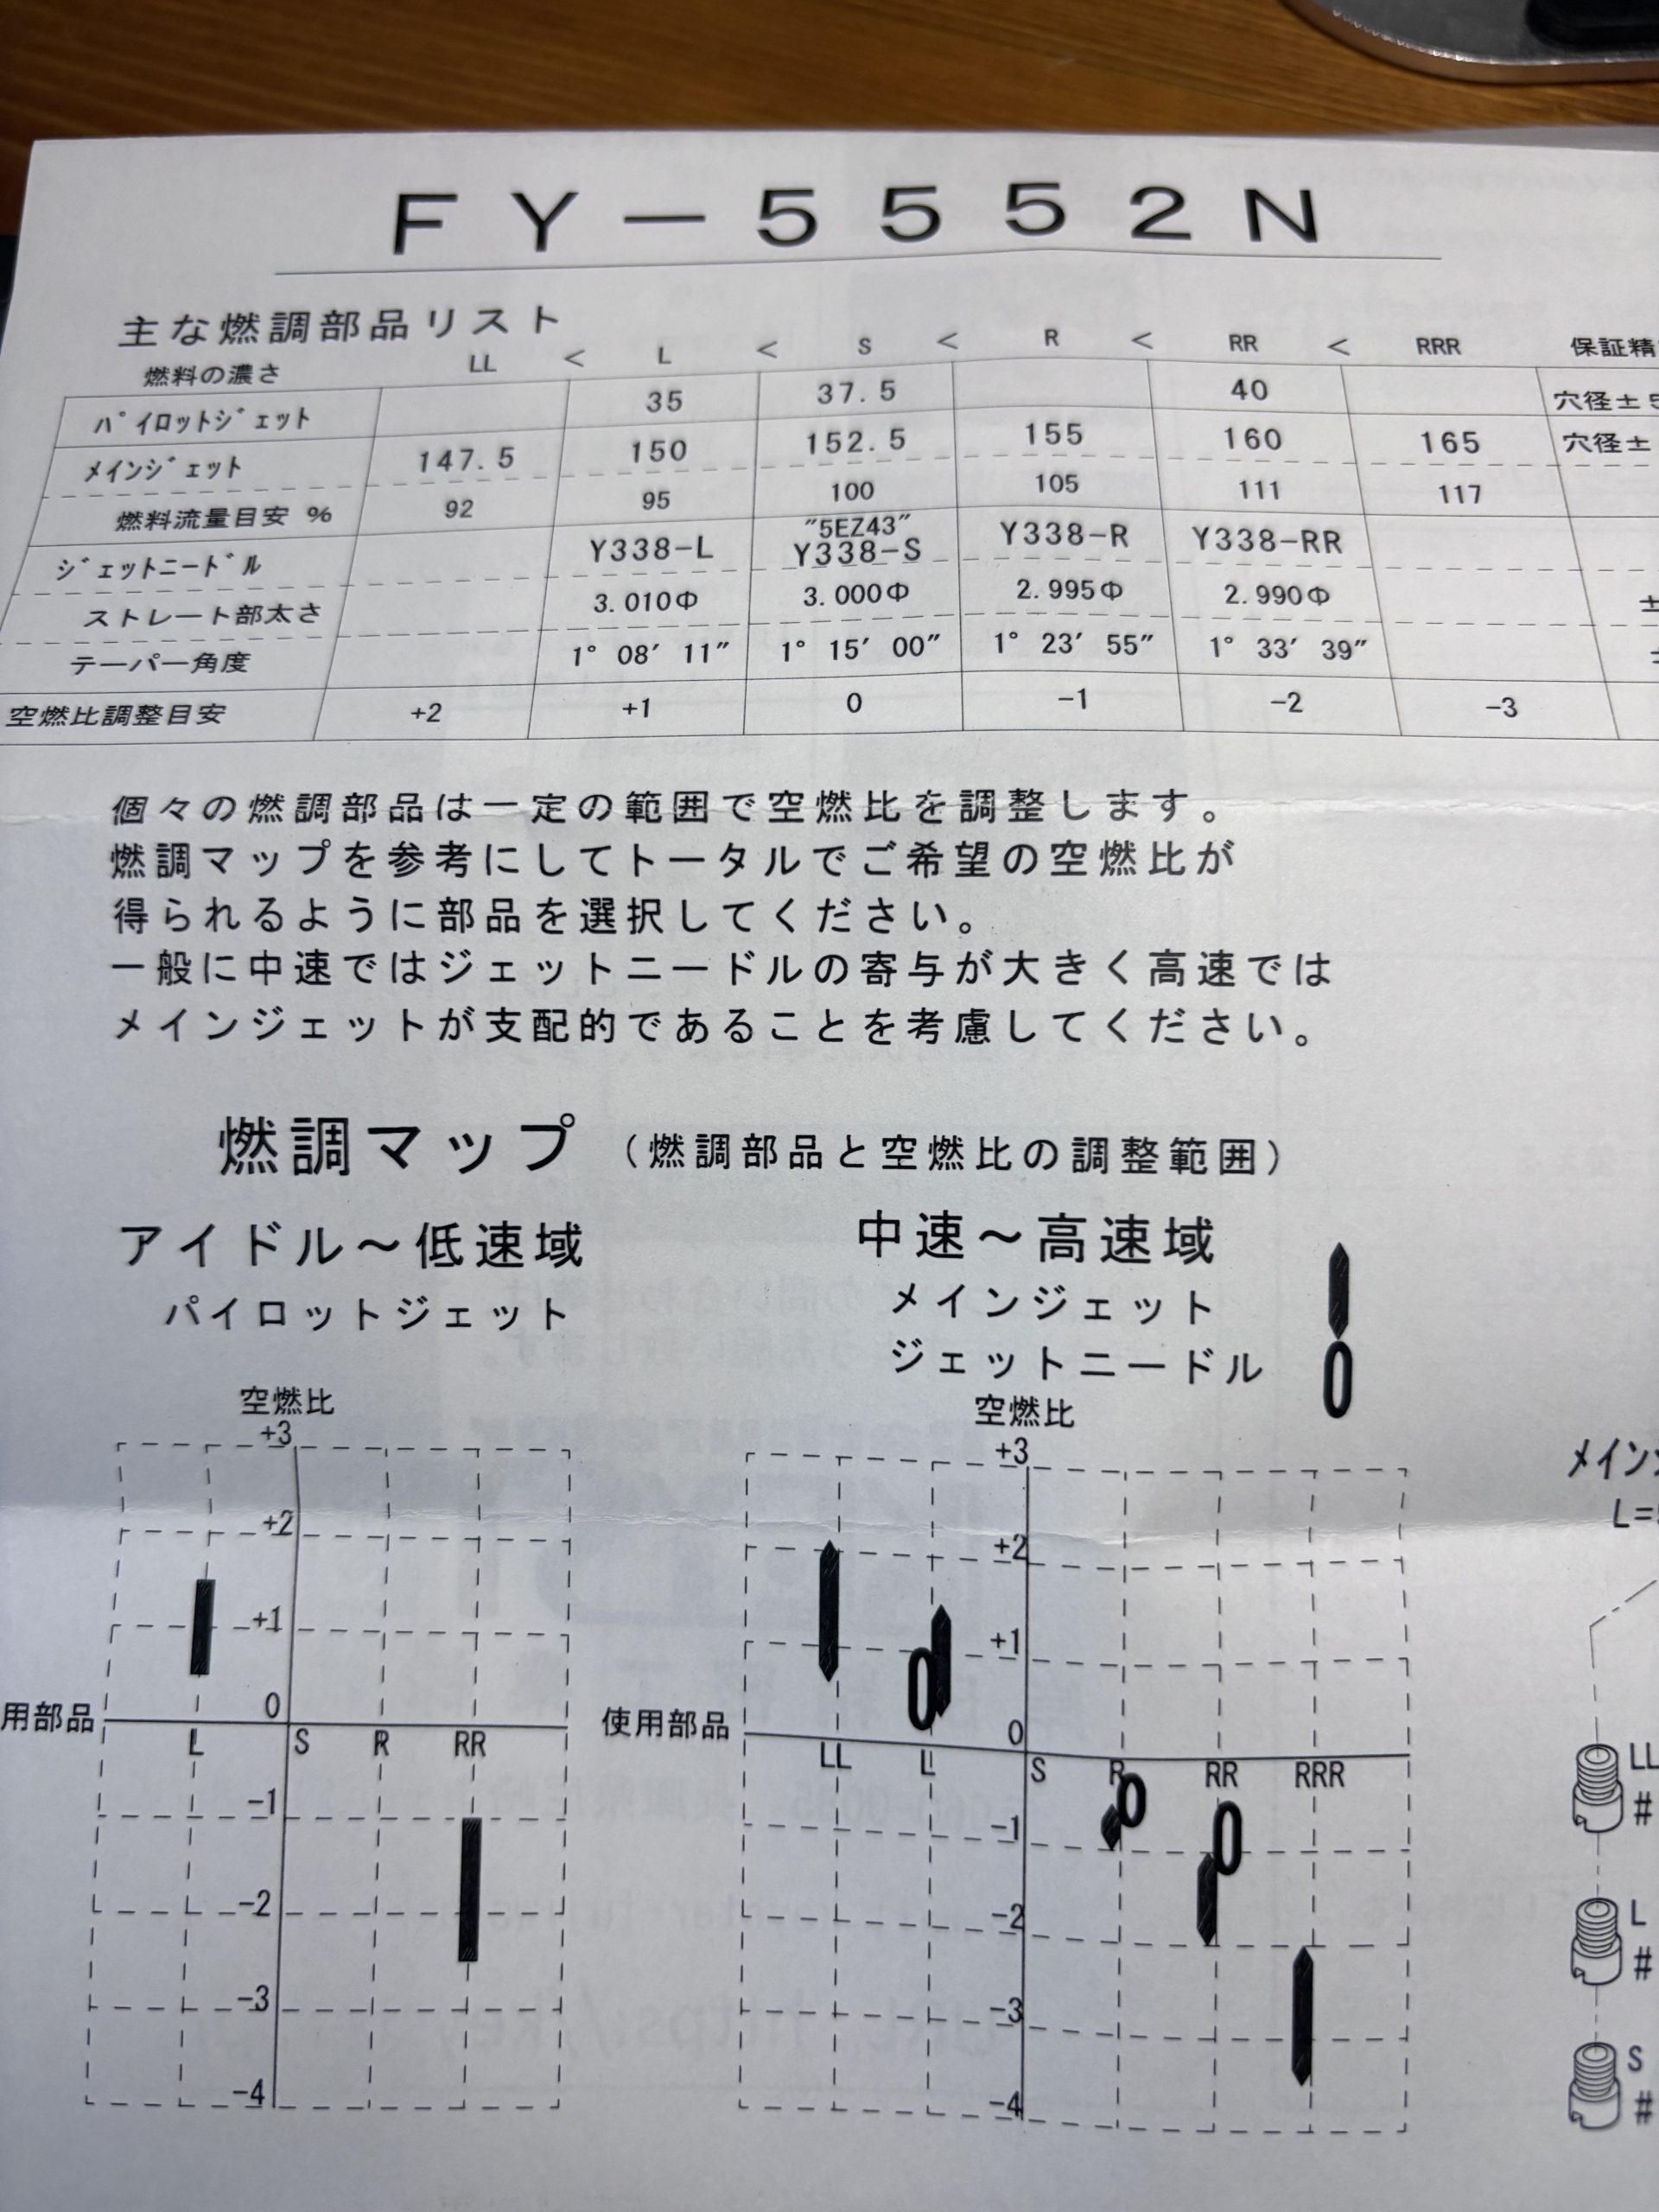 FY-5552N
主な燃調部品リスト
燃料の濃さ LL < L < S < R < RR < RRR 保証精
パイロットジェット 35 37.5 40 穴径±5
メインジェット 147.5 150 152.5 155 160 165 穴径±
燃料流量目安 % 92 95 100 105 111 117
ジェットニードル Y338-L "5EZ43" Y338-S Y338-R Y338-RR
ストレート部太さ 3.010Φ 3.000Φ 2.995Φ 2.990Φ ±
テーパー角度 1° 08′ 11″ 1° 15′ 00″ 1° 23′ 55″ 1° 33′ 39″ ±
空燃比調整目安 +2 +1 0 -1 -2 -3
個々の燃調部品は一定の範囲で空燃比を調整します。
燃調マップを参考にしてトータルでご希望の空燃比が
得られるように部品を選択してください。
一般に中速ではジェットニードルの寄与が大きく高速では
メインジェットが支配的であることを考慮してください。
燃調マップ (燃調部品と空燃比の調整範囲)
アイドル～低速域
パイロットジェット
空燃比
+3
+2
+1
0
用部品
L S R RR
-1
-2
-3
-4
中速～高速域
メインジェット
ジェットニードル
空燃比
+3
+2
+1
0
使用部品
LL L S R RR RRR
-1
-2
-3
-4
メイン
L=
LL
#
L
#
S
#